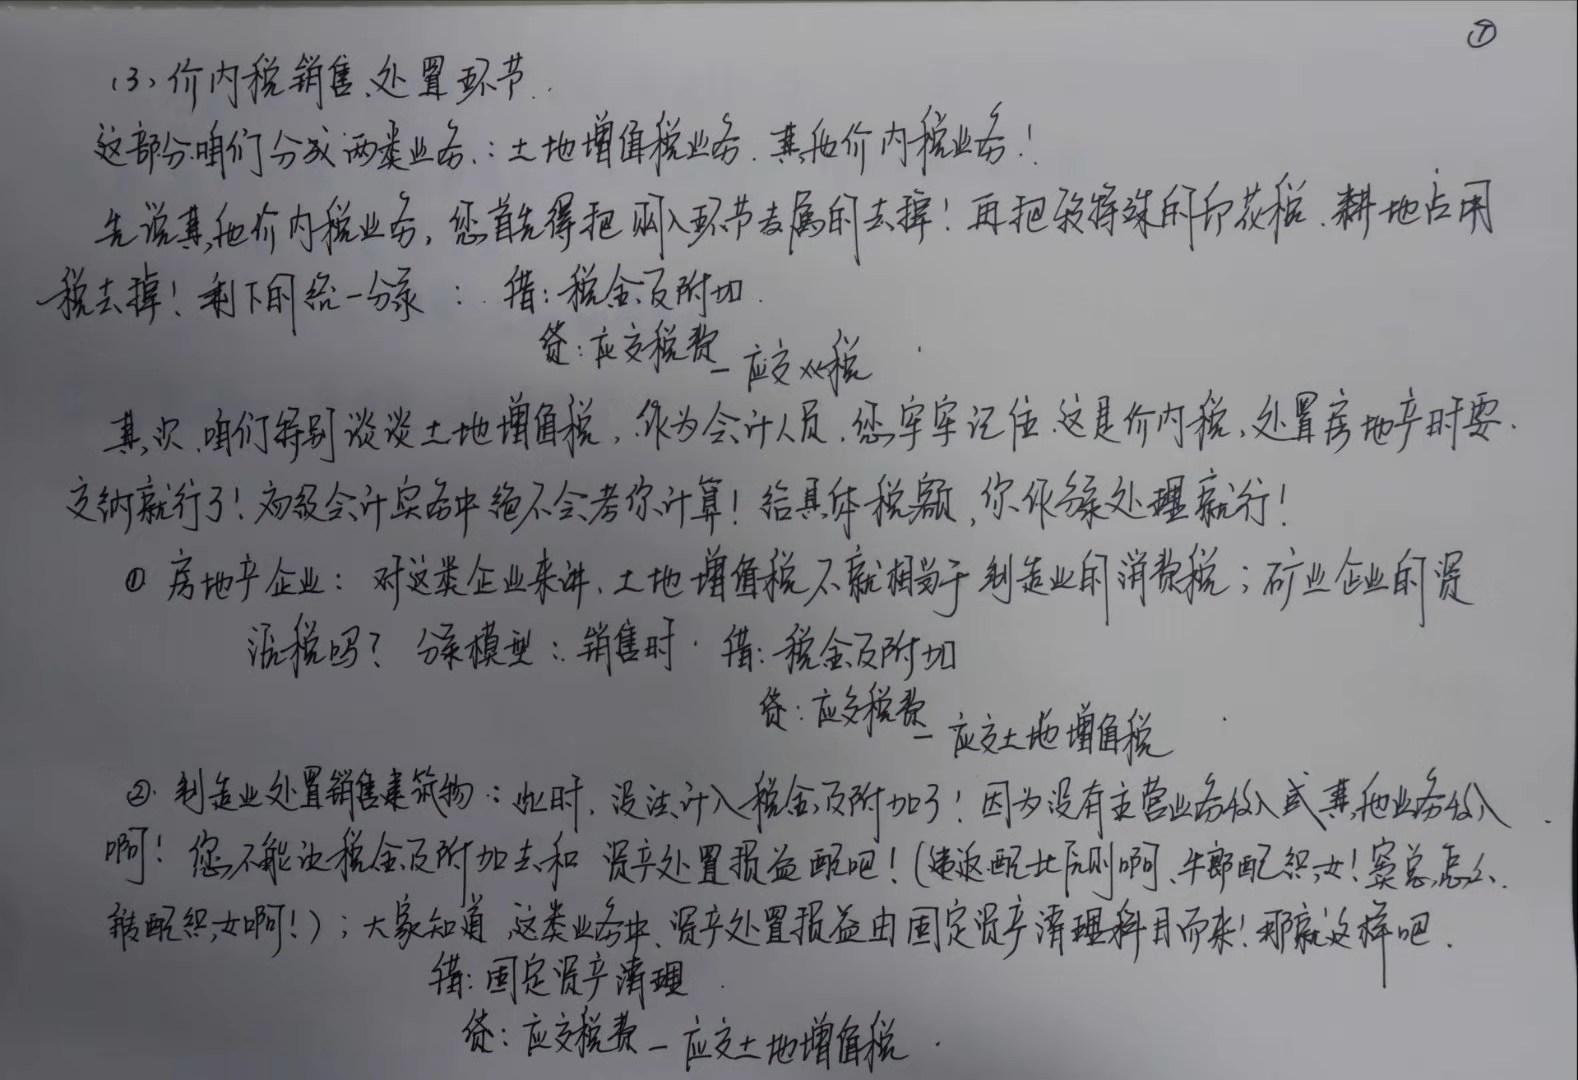 ⑦
(3)、价内税销售、处置环节.
这部分咱们分成两类业务:土地增值税业务.其他价内税业务!
先说其他价内税业务,您首先得把购入环节专属的去掉!再把较特殊的印花税.耕地占用
税去掉!剩下的给一分录:借:税金及附加.
贷:应交税费—应交××税
其次.咱们特别谈谈土地增值税,作为会计人员.您牢牢记住.这是价内税,处置房地产时要
交纳就行了!初级会计实务中绝不会考你计算!给具体税额,你作分录处理就行!
① 房地产企业:对这类企业来讲.土地增值税不就相当于制造业的消费税;矿业企业的资
源税吗?分录模型:销售时.借:税金及附加
贷:应交税费—应交土地增值税
②.制造业处置销售建筑物:此时.没法计入税金及附加了!因为没有主营业务收入或其他业务收入
啊!您不能让税金及附加去和资产处置损益配吧!(违返配比原则啊、牛郎配织女!窦总怎么
能配织女啊!);大家知道,这类业务中、资产处置损益由固定资产清理科目而来!那就这样吧.
借:固定资产清理
贷:应交税费—应交土地增值税.